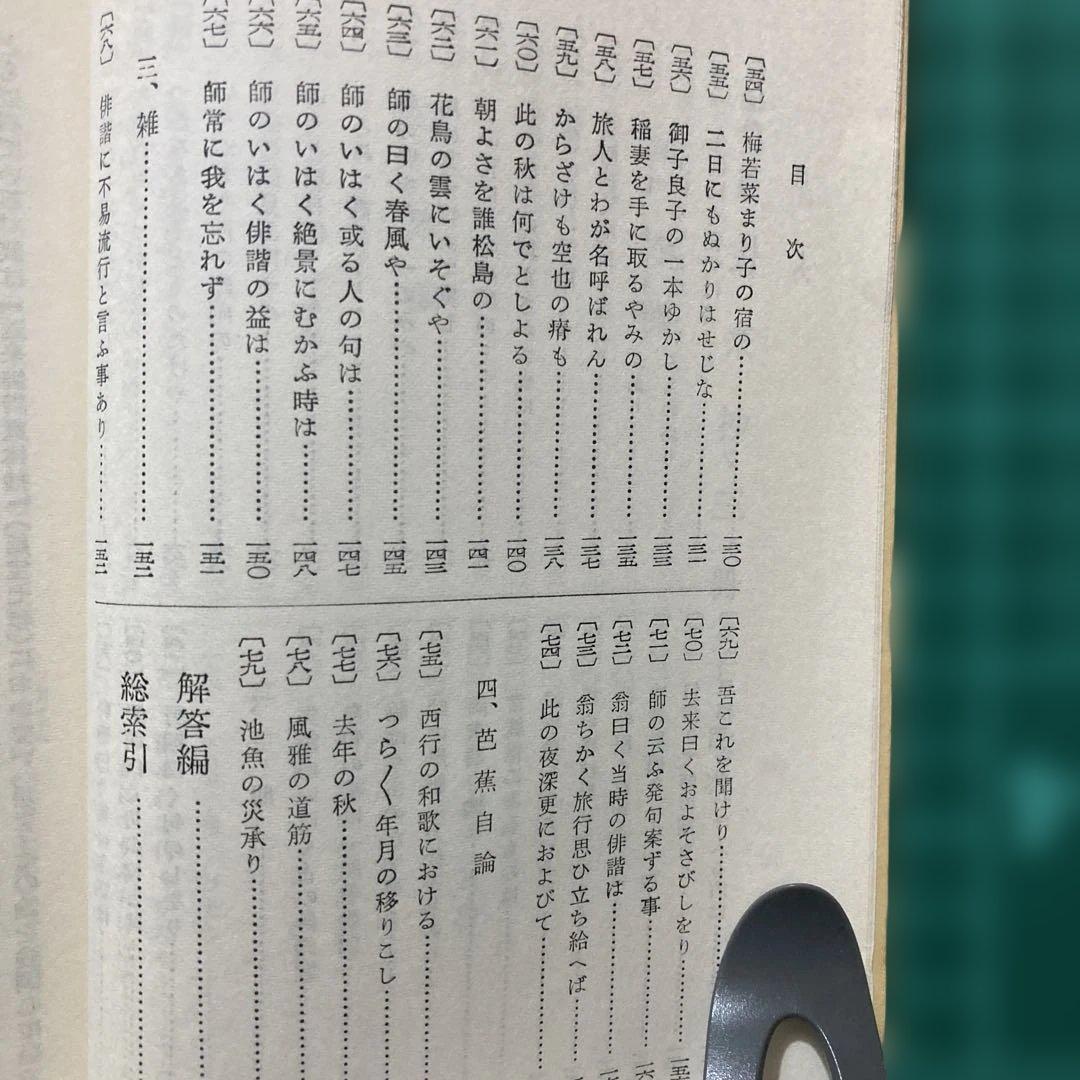 目次
〔五四〕 梅若菜まり子の宿の…………一三〇
〔五五〕 二日にもぬかりはせじな…………一三一
〔五六〕 御子良子の一本ゆかし…………一三三
〔五七〕 稲妻を手に取るやみの…………一三五
〔五八〕 旅人とわが名呼ばれん…………一三七
〔五九〕 からざけも空也の瘠も…………一三八
〔六〇〕 此の秋は何でとしよる…………一四〇
〔六一〕 朝よさを誰松島の…………一四一
〔六二〕 花鳥の雲にいそぐや…………一四三
〔六三〕 師の曰く春風や…………一四五
〔六四〕 師のいはく或る人の句は…………一四七
〔六五〕 師のいはく絶景にむかふ時は…………一四八
〔六六〕 師のいはく俳諧の益は…………一五〇
〔六七〕 師常に我を忘れず…………一五一
三、雑…………一五二
〔六八〕 俳諧に不易流行と言ふ事あり…………一五二
〔六九〕 吾これを聞けり…………
〔七〇〕 去来曰くおよそさびしをり…………一五
〔七一〕 師の云ふ発句案ずる事…………
〔七二〕 翁曰く当時の俳諧は…………
〔七三〕 翁ちかく旅行思ひ立ち給へば…………
〔七四〕 此の夜深更におよびて…………
四、芭蕉自論
〔七五〕 西行の和歌における…………
〔七六〕 つら〱年月の移りこし
〔七七〕 去年の秋…………
〔七八〕 風雅の道筋…………
〔七九〕 池魚の災承り…………
解答編…………
総索引…………